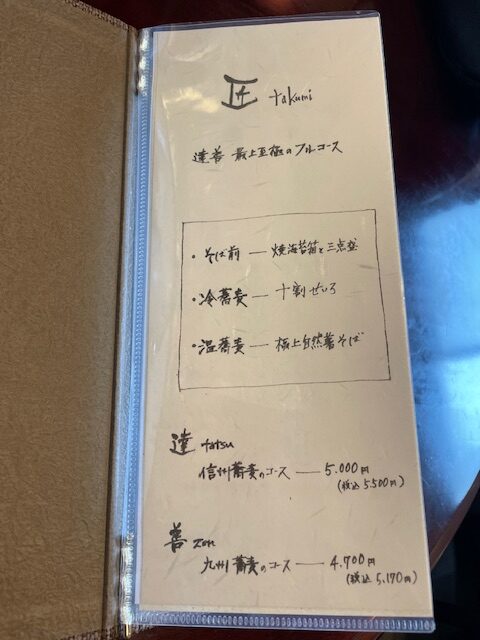 匠 takumi
達善 最上至極のフルコース
・そば前 — 焼海苔箱と三点盛
・冷蕎麦 — 十割せいろ
・温蕎麦 — 極上自然薯そば
達 tatsu
信州蕎麦のコース — 5.000円
(税込 5.500円)
善 zen
九州蕎麦のコース — 4.700円
(税込 5.170円)